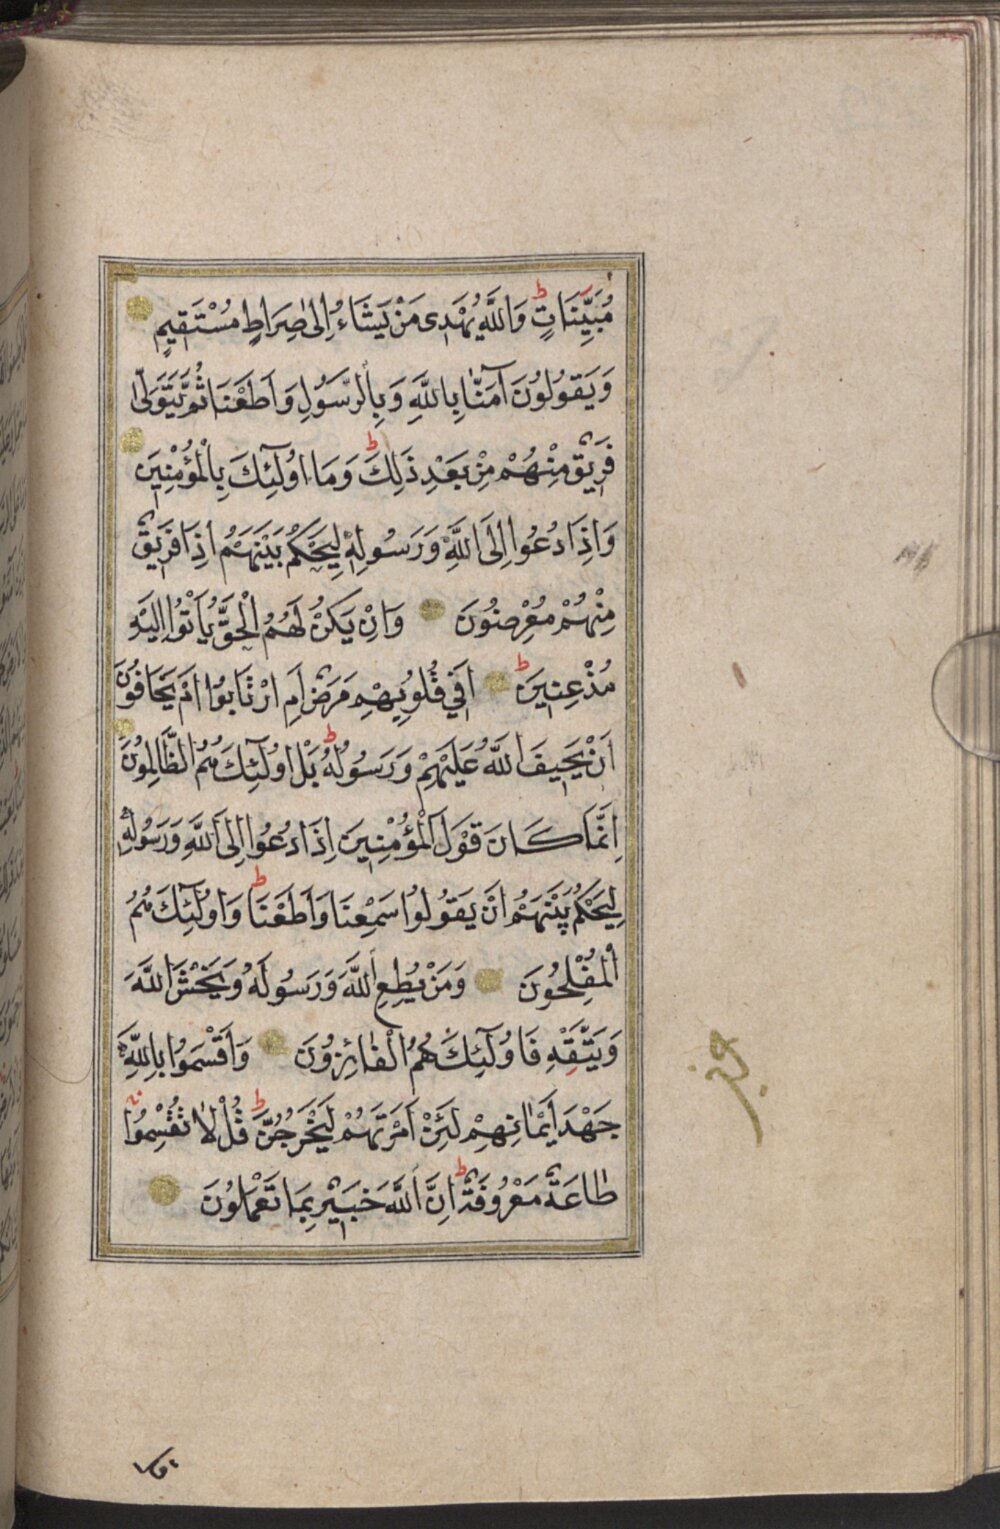 مُبَيِّنَاتٍ ط وَاللَّهُ يَهْدِى مَنْ يَشَاءُ اِلٰى صِرَاطٍ مُسْتَقِيمٍ
وَيَقُولُونَ آمَنَّا بِاللَّهِ وَبِالرَّسُولِ وَاَطَعْنَا ثُمَّ يَتَوَلّٰى
فَرِيقٌ مِنْهُمْ مِنْ بَعْدِ ذٰلِكَ ط وَمَا اُولٰٓئِكَ بِالْمُؤْمِنِينَ
وَاِذَا دُعُوا اِلَى اللَّهِ وَرَسُولِهِ لِيَحْكُمَ بَيْنَهُمْ اِذَا فَرِيقٌ
مِنْهُمْ مُعْرِضُونَ وَاِنْ يَكُنْ لَهُمُ الْحَقُّ يَأْتُوا اِلَيْهِ
مُذْعِنِينَ ط اَفِي قُلُوبِهِمْ مَرَضٌ اَمِ ارْتَابُوا اَمْ يَخَافُونَ
اَنْ يَحِيفَ اللَّهُ عَلَيْهِمْ وَرَسُولُهُ ط بَلْ اُولٰٓئِكَ هُمُ الظَّالِمُونَ
اِنَّمَا كَانَ قَوْلَ الْمُؤْمِنِينَ اِذَا دُعُوا اِلَى اللَّهِ وَرَسُولِهِ
لِيَحْكُمَ بَيْنَهُمْ اَنْ يَقُولُوا سَمِعْنَا وَاَطَعْنَا ط وَاُولٰٓئِكَ هُمُ
الْمُفْلِحُونَ وَمَنْ يُطِعِ اللَّهَ وَرَسُولَهُ وَيَخْشَ اللَّهَ
وَيَتَّقْهِ فَاُولٰٓئِكَ هُمُ الْفَائِزُونَ وَاَقْسَمُوا بِاللَّهِ
جَهْدَ اَيْمَانِهِمْ لَئِنْ اَمَرْتَهُمْ لَيَخْرُجُنَّ ط قُلْ لَا تُقْسِمُوا
طَاعَةٌ مَعْرُوفَةٌ ط اِنَّ اللَّهَ خَبِيرٌ بِمَا تَعْمَلُونَ